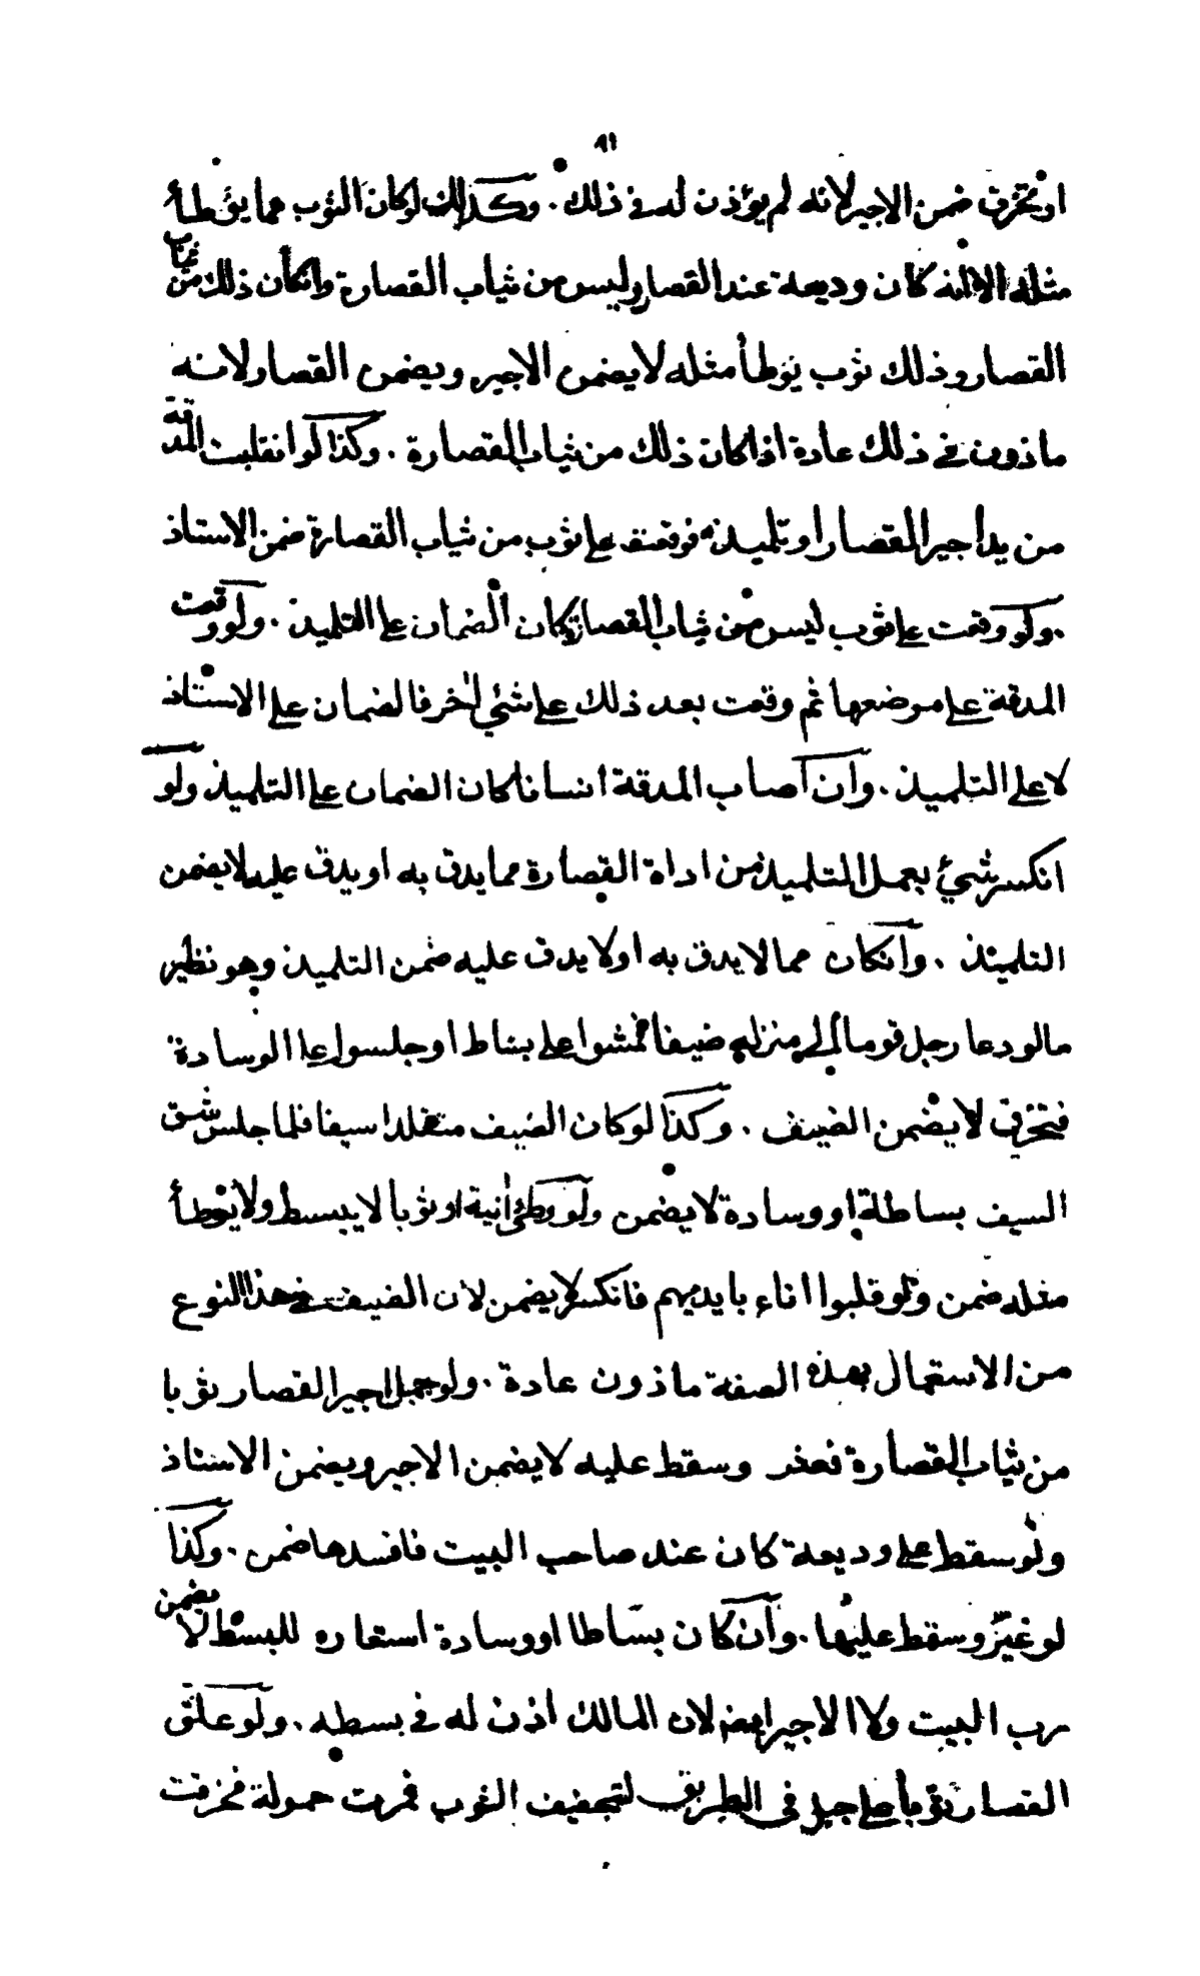 ٩١
او تخرق ضمن الاجير لانه لم يؤذن له في ذلك . وكذلك لو كان الثوب مما يؤطأ
مثله الا انه كان وديعة عند القصار وليس من ثياب القصارة وانكان ذلك من ثياب
القصار وذلك ثوب يؤطأ مثله لا يضمن الاجير ويضمن القصار لانه
ماذون في ذلك عادة اذا كان ذلك من ثياب القصارة . وكذا لو انفلتت المدقة
من يد اجير القصار او تلميذه فوقعت على ثوب من ثياب القصارة ضمن الاستاذ
. ولو وقعت على ثوب ليس من ثياب القصارة كان الضمان على التلميذ . ولو وقعت
المدقة على موضعها ثم وقعت بعد ذلك على شئ اخر فالضمان على الاستاذ
لا على التلميذ . وان اصاب المدقة انسانا كان الضمان على التلميذ ولو
انكسر شئ بعمل التلميذ من اداة القصارة مما يدق به او يدق عليه لا يضمن
التلميذ . وانكان مما لا يدق به او لا يدق عليه ضمن التلميذ وهو نظير
مالو دعا رجل قوما الى منزله ضيفا فمشوا على بساط او جلسوا على الوسادة
فتخرق لا يضمن الضيف . وكذا لو كان الضيف متقلدا سيفا فلما جلس شق
السيف بساطا او وسادة لا يضمن ولو وطئ انية او ثوبا لا يبسط ولا يؤطأ
مثله ضمن ولو قلبوا اناء بايديهم فانكسر لا يضمن لان الضيف في هذا النوع
من الاستعمال بهذه الصفة ماذون عادة . ولو حمل اجير القصار ثوبا
من ثياب القصارة فعثر وسقط عليه لا يضمن الاجير ويضمن الاستاذ
ولو سقط على وديعة كان عند صاحب البيت فافسدها ضمن . وكذا
لو عثر وسقط عليها . وان كان بساطا او وسادة استعاره للبسط لا يضمن
رب البيت ولا الاجير ايضا لان المالك اذن له في بسطه . ولو علق
القصار ثوبا على حبل في الطريق لتجفيف الثوب فمرت حمولة فخرقت